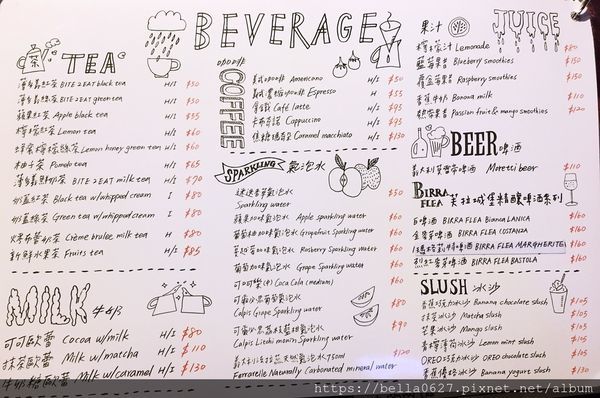 BEVERAGE
TEA
薄義紅茶 BITE 2 EAT black tea H/I $50
薄義綠茶 BITE 2 EAT green tea H/I $50
蘋果紅茶 Apple black tea H/I $55
檸檬紅茶 Lemon tea H/I $60
蜂蜜檸檬綠茶 Lemon honey green tea H/I $60
柚子茶 Pomelo tea H/I $65
薄義鮮奶茶 BITE 2 EAT milk tea H/I $70
奶蓋紅茶 Black tea w/whipped cream I $80
奶蓋綠茶 Green tea w/whipped cream I $80
烤布蕾奶茶 Crème brulee milk tea H $80
新鮮水果茶 Fruits tea H/I $85
MILK
可可歐蕾 Cocoa w/milk H/I $80
抹茶歐蕾 Milk w/matcha H/I $110
牛奶糖歐蕾 Milk w/caramel H/I $130
COFFEE
美式咖啡 Americano H/I $50
義式濃縮咖啡 Espresso H $55
拿鐵 Café latte H/I $95
卡布奇諾 Cappuccino H/I $95
焦糖瑪奇朵 Caramel macchiato H/I $130
SPARKLING 氣泡水
Sparkling water $50
蘋果加味氣泡水 Apple sparkling water $60
葡萄柚加味氣泡水 Grapefruit Sparkling water $60
蔓越莓加味氣泡水 Rasberry Sparkling water $60
葡萄加味氣泡水 Grape Sparkling water $60
可口可樂(中) Coca Cola (medium) $60
可爾必思葡萄氣泡水
Calpis Grape Sparkling water $80
可爾必思荔枝蔓越氣泡水
Calpis Litchi monin Sparkling water $90
Ferrarelle Naturally Carbonated mineral water $120
果汁 JUICE
檸檬汁 Lemonade $80
藍莓果昔 Blueberry smoothies $150
覆盆莓果昔 Raspberry smoothies $150
香蕉牛奶 Banana milk $110
熱帶果昔 Passion fruit & mango smoothies $120
BEER 啤酒
義大利莫雷蒂啤酒 Moretti beer $110
BIRRA FLEA 芙拉城堡精釀啤酒系列
白啤酒 BIRRA FLEA Bianca LANICA $160
金麥芽啤酒 BIRRA FLEA COSTANZA $160
瑪格莉特啤酒 BIRRA FLEA MARGHERITE $160
烈紅麥芽啤酒 BIRRA FLEA BASTOLA $160
SLUSH 冰沙
香蕉巧克力冰沙 Banana chocolate slush $105
抹茶冰沙 Matcha slush $105
芒果冰沙 Mango slush $105
檸檬薄荷冰沙 Lemon mint slush $105
OREO巧克力冰沙 OREO chocolate slush $105
香蕉優格冰沙 Banana yogurt slush $130
https://bella0627.pixnet.net/album